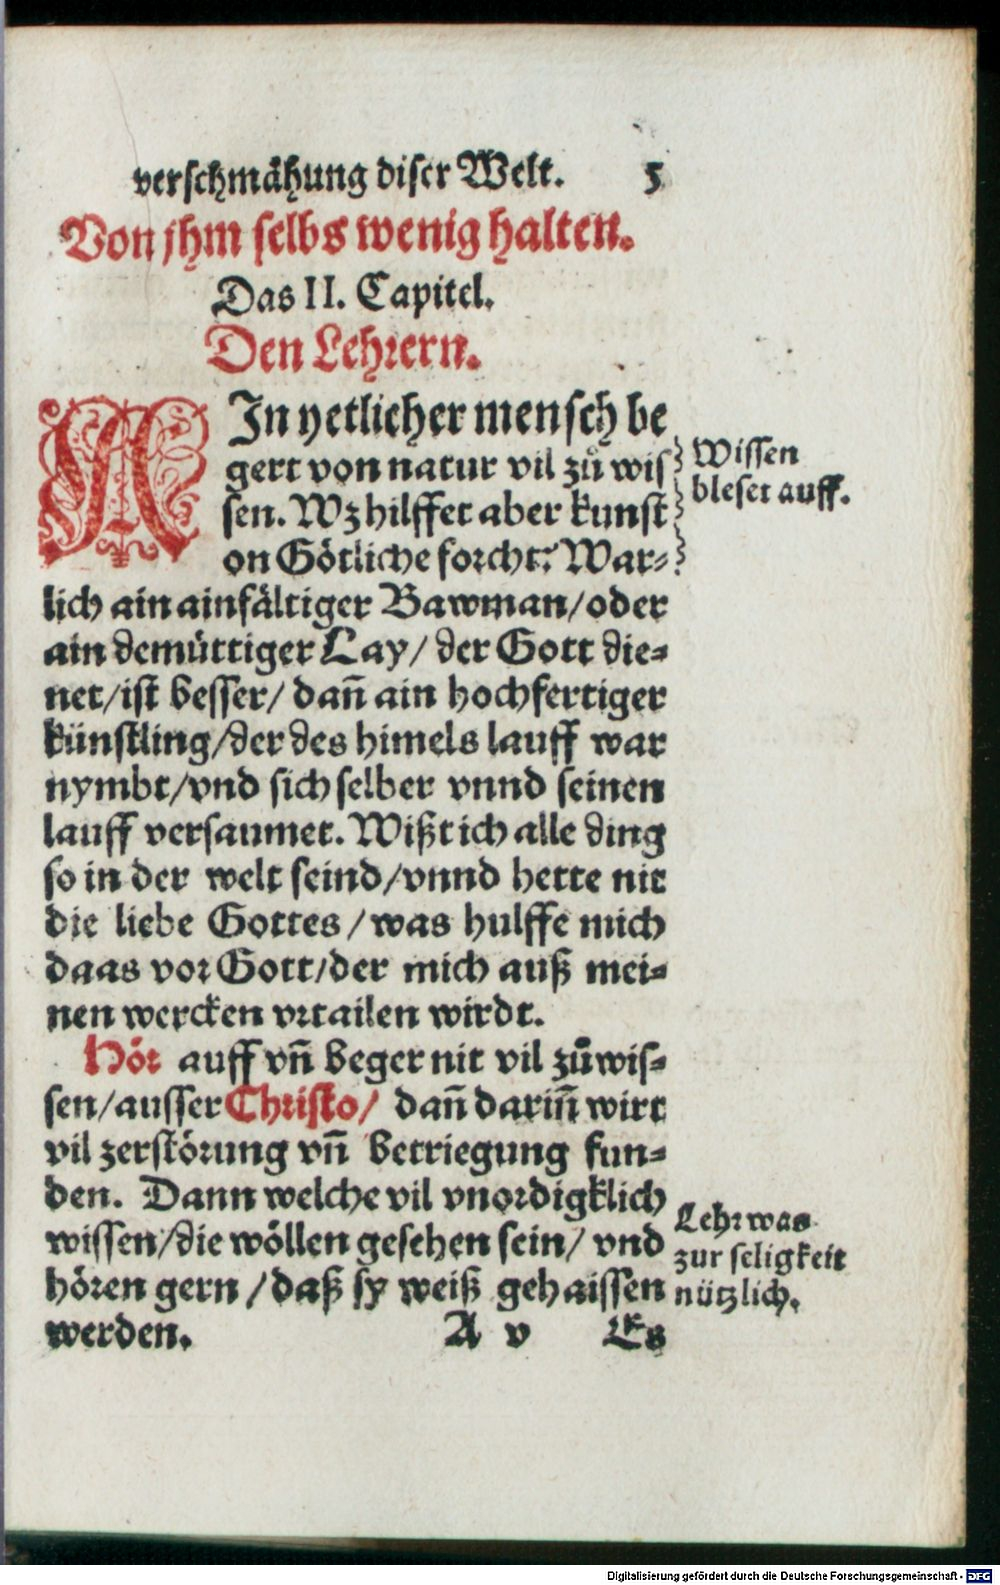 verschmähung diser Welt. 5
Von jhm selbs wenig halten.
Das II. Capitel.
Den Lehrern.
AIn yetlicher mensch be
gert von natur vil zů wis
sen. Wz hilffet aber kunst
on Götliche forcht? War-
Wissen
bleset auff.
lich ain ainfältiger Bawman/oder
ain demüttiger Lay/ der Gott die-
net/ist besser/ dañ ain hochfertiger
künstling/der des himels lauff war
nymbt/vnd sich selber vnnd seinen
lauff versaumet. Wißt ich alle ding
so in der welt seind/vnnd hette nit
die liebe Gottes/was hulffe mich
daas vor Gott/der mich auß mei-
nen wercken vrtailen wirdt.
Hör auff vñ beger nit vil zů wis-
sen/ausser Christo/ dañ dariñ wirt
vil zerstörung vñ betriegung fun-
den. Dann welche vil vnordigklich
wissen/die wöllen gesehen sein/ vnd
hören gern/daß sy weiß gehaissen
werden. A v Es
Lehr was
zur seligkeit
nützlich.
Digitalisierung gefördert durch die Deutsche Forschungsgemeinschaft - DFG